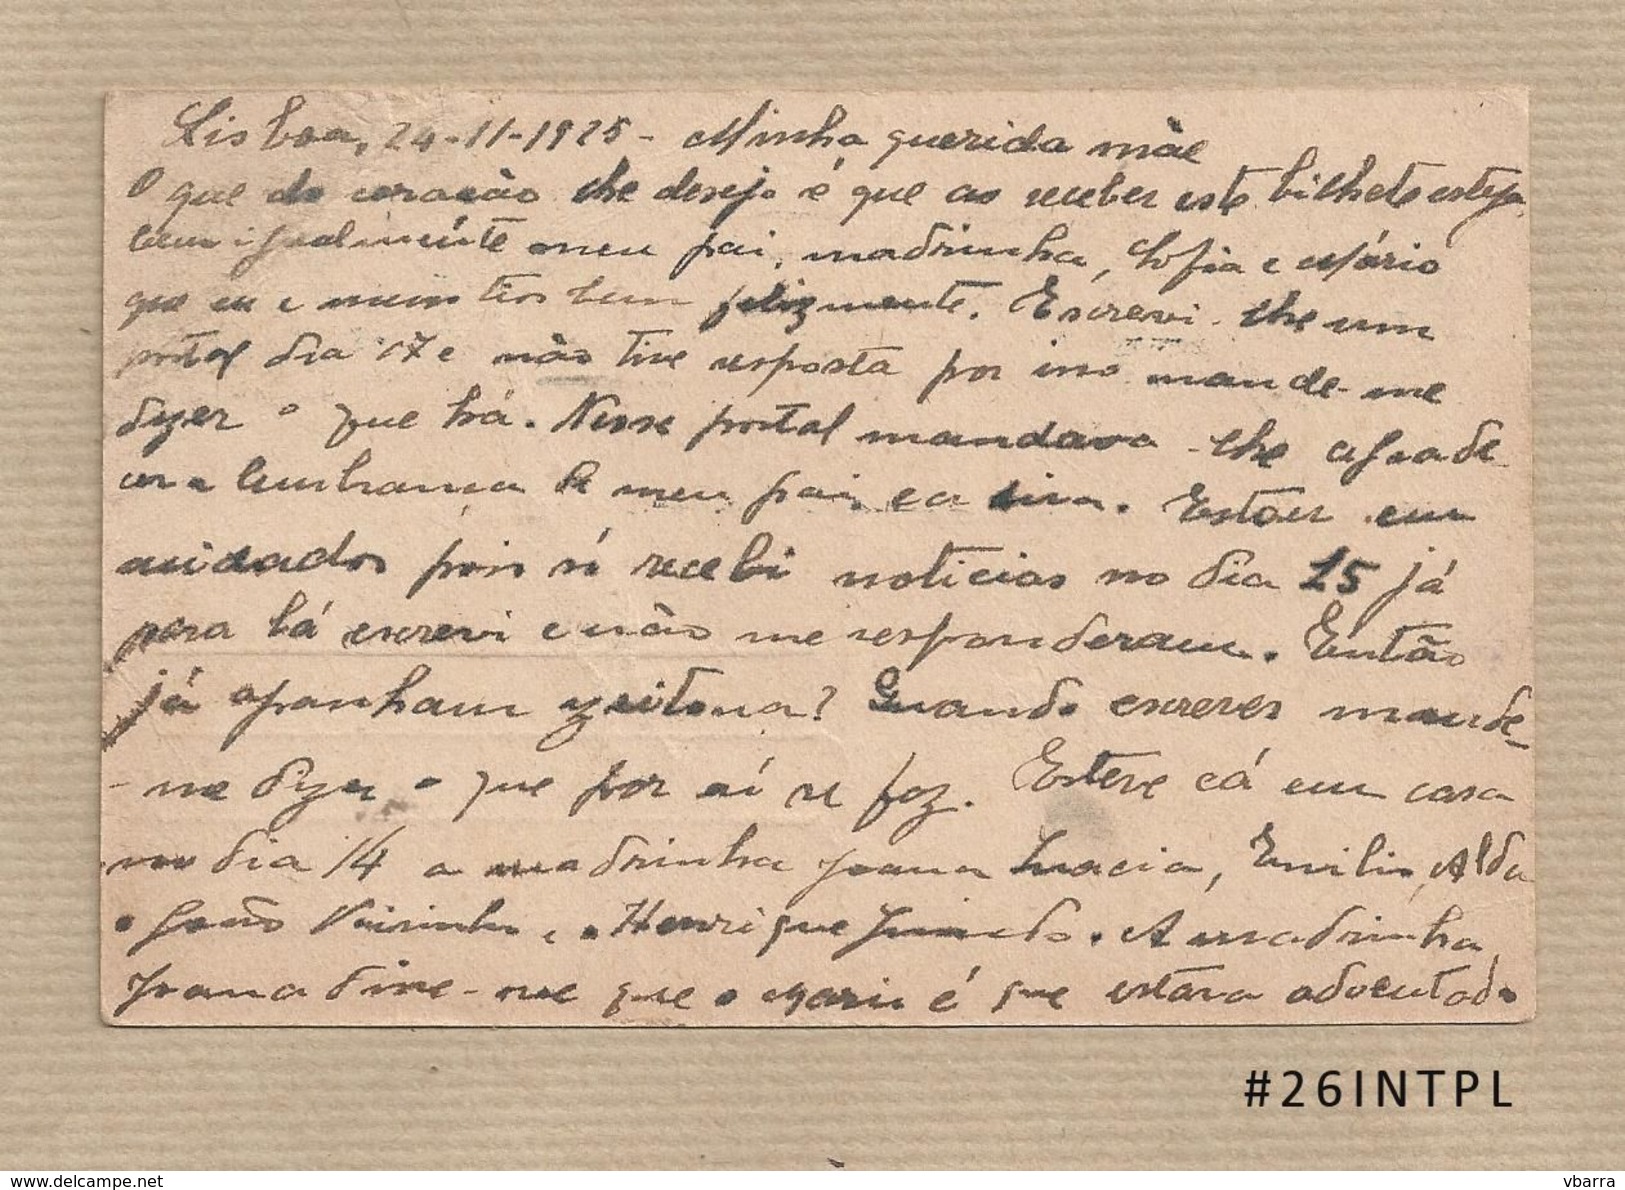 Lisboa, 24-11-1925 - Minha querida mãe
O que do coração lhe desejo é que ao receber este bilhete esteja
bem igualmente meu pai, madrinha, Sofia e Mário
que eu e meus tios bem felizmente. Escrevi-lhe um
postal dia 17 e não tive resposta por isso mande-me
dizer o que há. Nesse postal mandava-lhe agrade
cer a lembrança de meu pai e a sua. Estou em
cuidados pois só recebi noticias no dia 15 já
para lá escrevi e não me responderam. Então
já apanham azeitona? Quando escrever mande-
-me dizer o que por aí se faz. Esteve cá em casa
no dia 14 a madrinha Joana Emilia, Alda
o João e o Henrique. A madrinha
Joana disse-me que o é que estava adoentado
#26INTPL
www.delcampe.net
vbarra